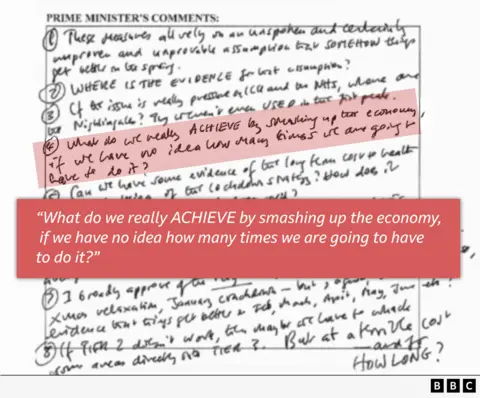 PRIME MINISTER'S COMMENTS:
① These measures all rely on an unspoken and certainly
unproven and unprovable assumption that SOMEHOW things
get better in the spring.
② WHERE IS THE EVIDENCE for that assumption?
③ If the issue is really pressure on ICU and the NHS, where are
the Nightingales? They weren't even USED in the first peak.
④ What do we really ACHIEVE by smashing up the economy,
if we have no idea how many times we are going to
have to do it?
Can we have some evidence of the long term cost to health
of the lockdown strategy? How does it
“What do we really ACHIEVE by smashing up the economy,
if we have no idea how many times we are going to have
to do it?”
I broadly approve of the
xmas relaxation, January crackdown - but
evidence that things get better in Feb, March, April, May, June etc?
⑧ If TIER 2 doesn't work, they may be we have to whack
some areas directly into TIER 3. But at a terrible cost
and for
HOW LONG?
BBC